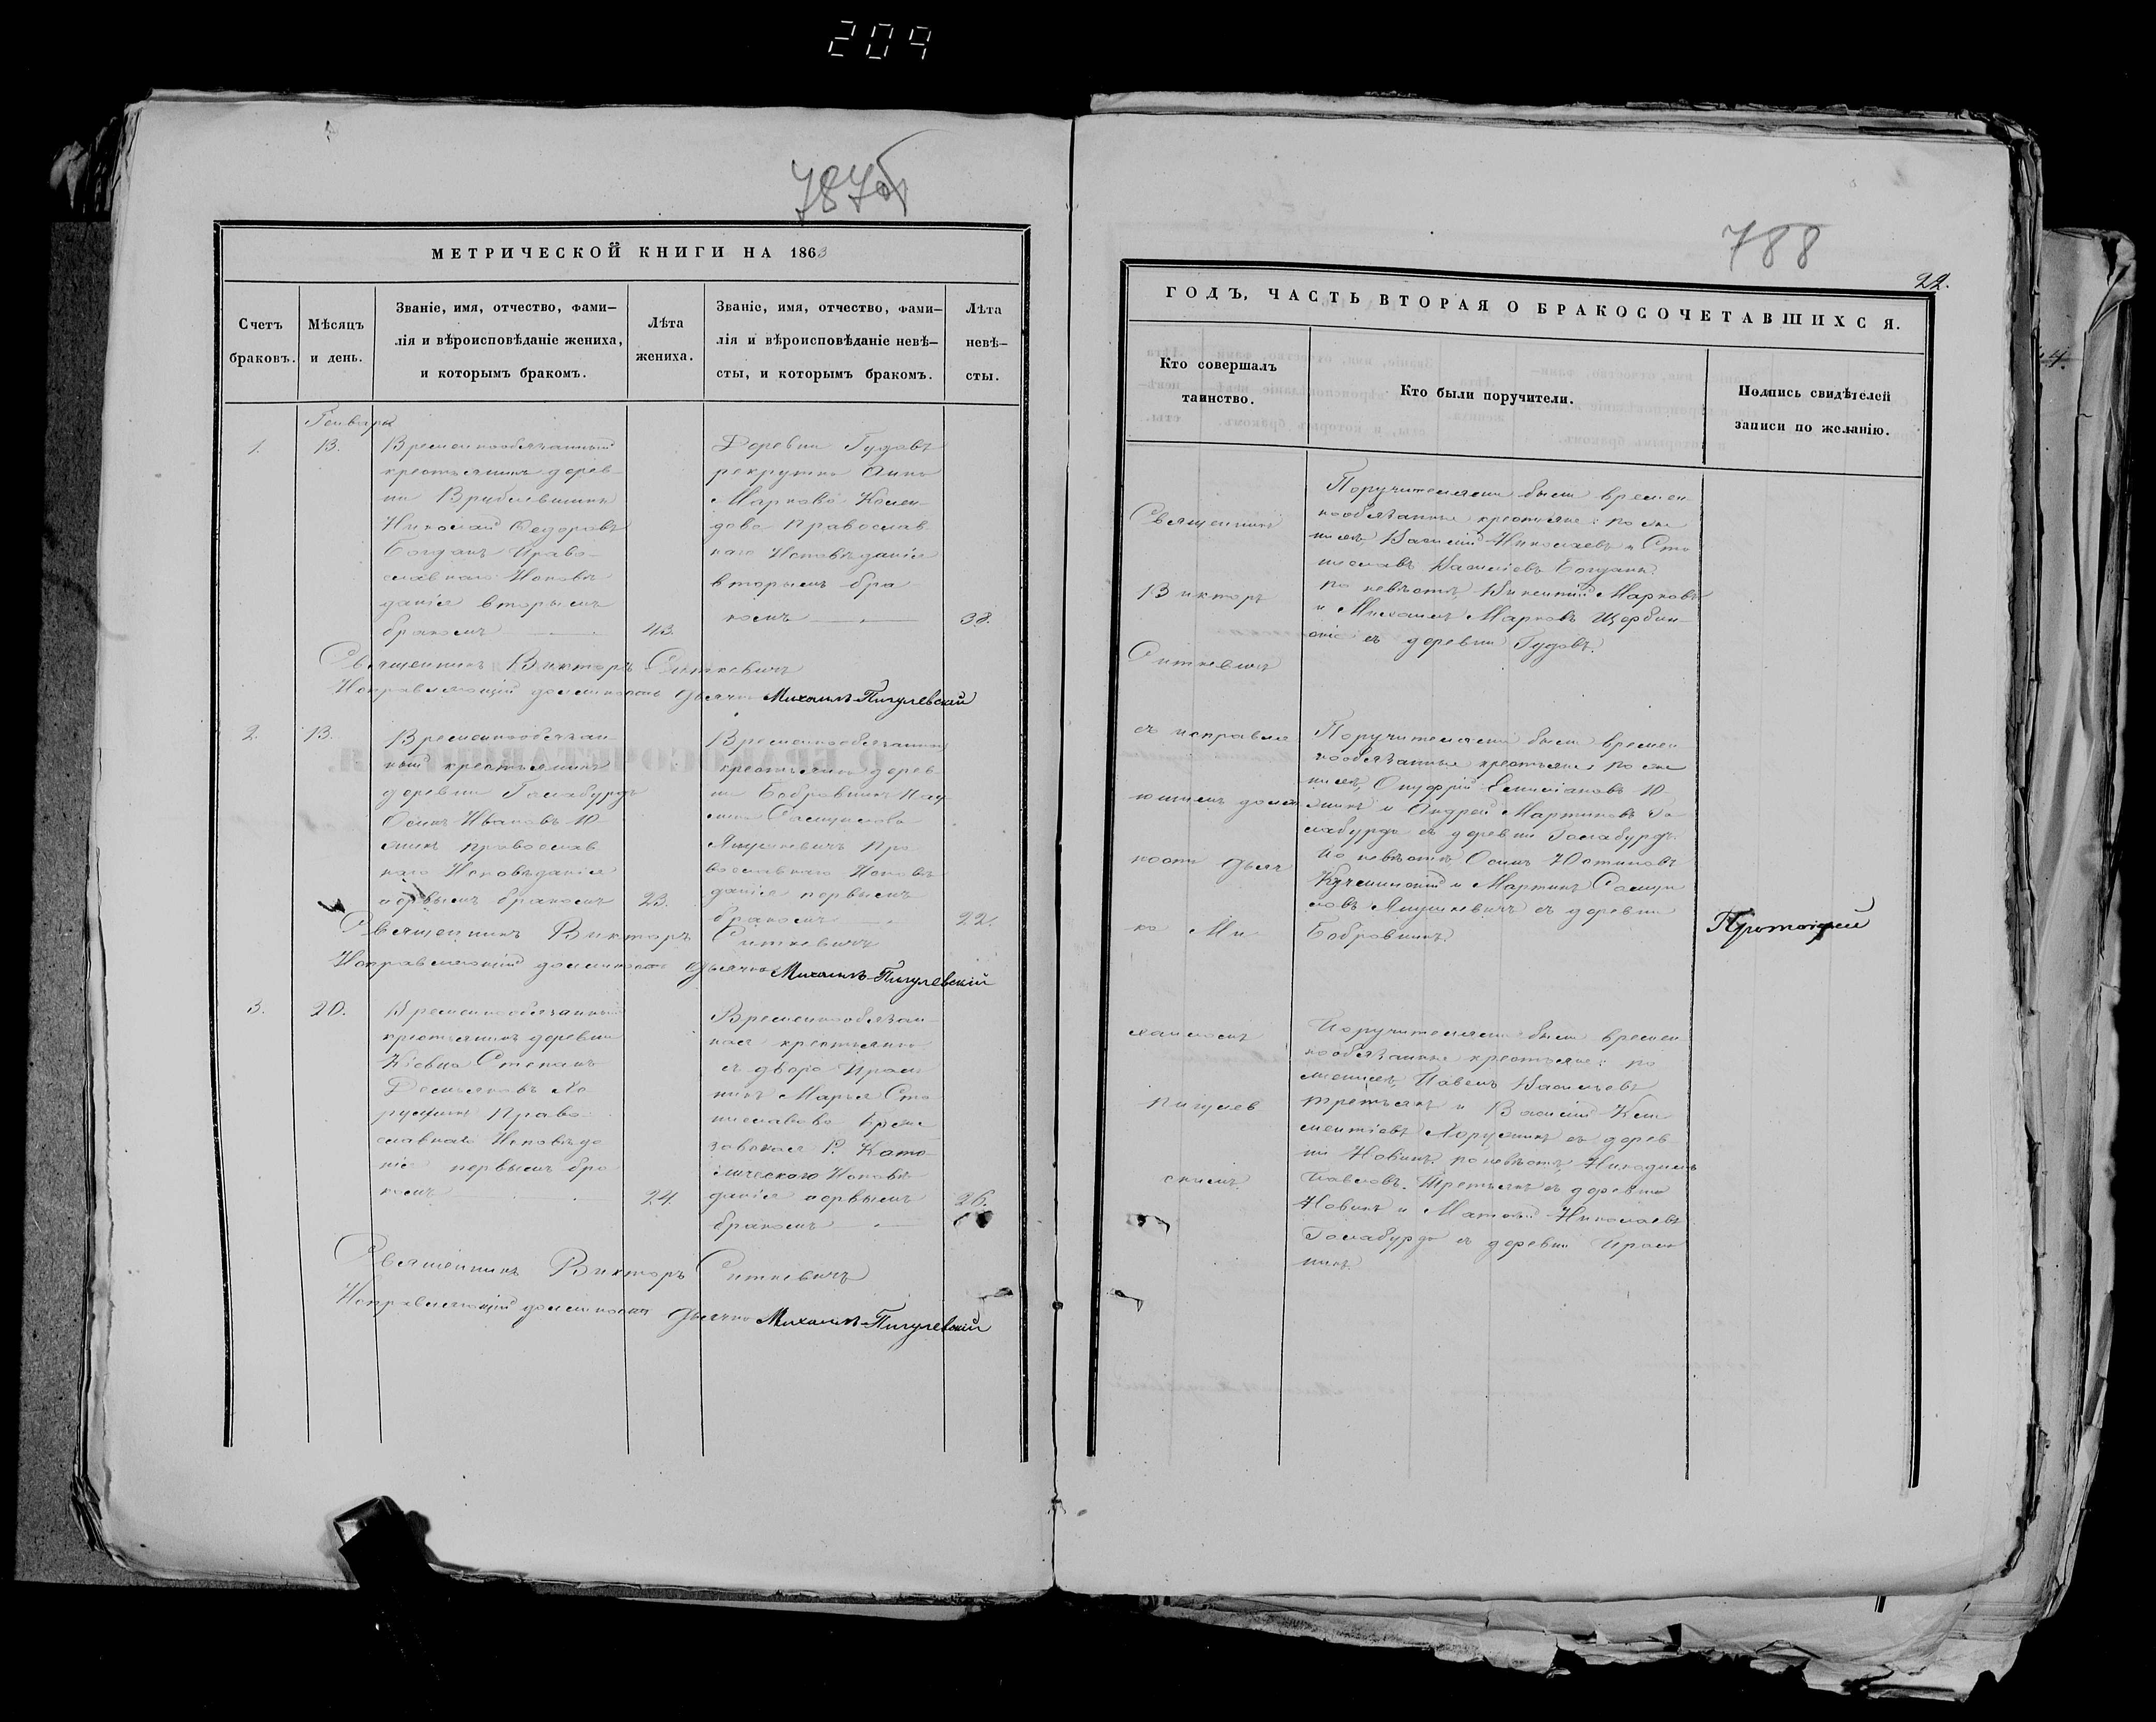 209
787об
МЕТРИЧЕСКОЙ КНИГИ НА 1863
Счетъ
браковъ.
Мѣсяцъ
и день.
Званіе, имя, отчество, фами-
лія и вѣроисповѣданіе жениха,
и которымъ бракомъ.
Лѣта
жениха.
Званіе, имя, отчество, фами-
лія и вѣроисповѣданіе невѣ-
сты, и которымъ бракомъ.
Лѣта
невѣ-
сты.
Генваря
1.
13.
Временнообязанный
крестьянинъ дерев-
ни
Николай Федоровъ
Богданъ Право-
славнаго Исповѣ
данія вторымъ
бракомъ
43.
Деревни Гудовъ
рекрутка Анна
Маркова
Православ
наго Исповѣданія
вторымъ бра
комъ
38.
Священникъ Викторъ Ситкевичъ
Исправляющій должность дьячка Михаилъ Пигулевскій
2.
13.
Временнообязан-
ный крестьянинъ
деревни Голабурдъ
Осипъ Ивановъ Ю-
православ
наго Исповѣданія
первымъ бракомъ
23.
Временнообязанная
крестьянка дерев
ни Бобровникъ Пау
лина Самуилова
Янушкевичъ Пра
вославнаго Исповѣ
данія первымъ
бракомъ
22.
Священникъ Викторъ Ситкевичъ
Исправляющій должность дьячка Михаилъ Пигулевскій
3.
20.
Временнообязанный
крестьянинъ деревни
Степанъ
Демьяновъ Хо
Право-
славнаго Исповѣда
нія первымъ бра
комъ
24.
Временнообязан-
ная крестьянка
съ двора
Марья Ста
ниславова
Р. Като-
лическаго Исповѣ
данія первымъ
бракомъ
26.
Священникъ Викторъ Ситкевичъ
Исправляющій должность дьячка Михаилъ Пигулевскій
788
22.
ГОДЪ, ЧАСТЬ ВТОРАЯ О БРАКОСОЧЕТАВШИХСЯ.
Кто совершалъ
таинство.
Кто были поручители.
Подпись свидѣтелей
записи по желанію.
Священникъ
Викторъ
Ситкевичъ
съ исправля
ющимъ долж
ность дьяч
ка Ми
хаиломъ
Пигулев
скимъ.
Поручителями были времен
нообязанные крестьяне: по же
нихѣ, Василій Николаевъ и Ста
ниславъ Василіевъ Богданы.
по невѣстѣ Викентій Марковъ
и Михаилъ Марковъ Щербин-
скіе съ деревни Гудовъ.
Поручителями были времен
нообязанные крестьяне: по же
нихѣ, Онуфрій Емиліановъ Ю-
и Андрей Мартиновъ Го
лабурда съ деревни Голабурдъ.
По невѣстѣ Осипъ Юстиновъ
и Мартинъ Самуи
ловъ Янушкевичъ съ деревни
Бобровникъ.
Протоіерей
Поручителями были времен
нообязанные крестьяне: по
женихѣ, Павелъ Васильевъ
Третьякъ и Василій Кли
ментіевъ съ дерев
ни Новинъ. по невѣстѣ, Никодимъ
Павловъ Третьякъ съ деревни
Новинъ и Матвѣй Николаевъ
Голабурда съ деревни